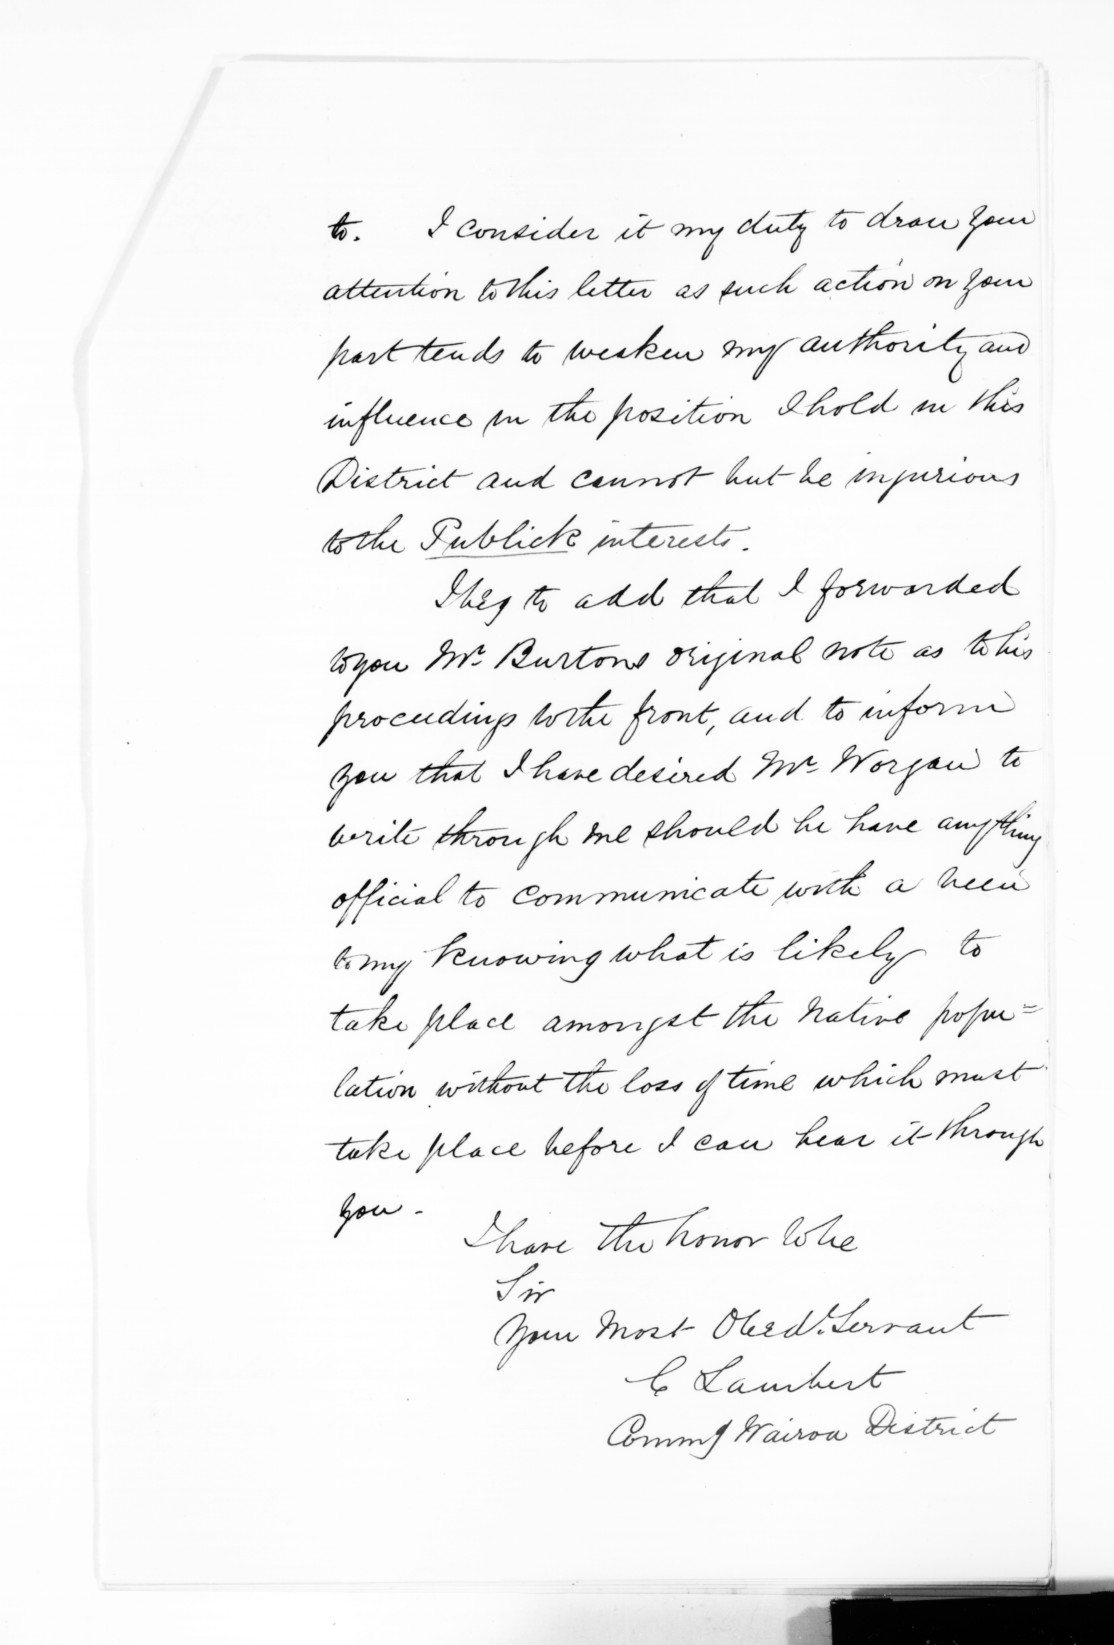 to. I consider it my duty to draw your
attention to this letter as such action on your
part tends to weaken my authority and
influence in the position I hold in this
District and cannot but be injurious
to the Publick interests.
I beg to add that I forwarded
to you Mr. Burtons original note as to his
proceedings to the front, and to inform
you that I have desired Mr. Worgan to
write through me should he have anything
official to communicate with a view
to my knowing what is likely to
take place amongst the Native popu=
lation without the loss of time which must
take place before I can hear it through
you -
I have the honor to be
Sir
Your Most Obedt. Servant
C Lambert
Commg Wairoa District